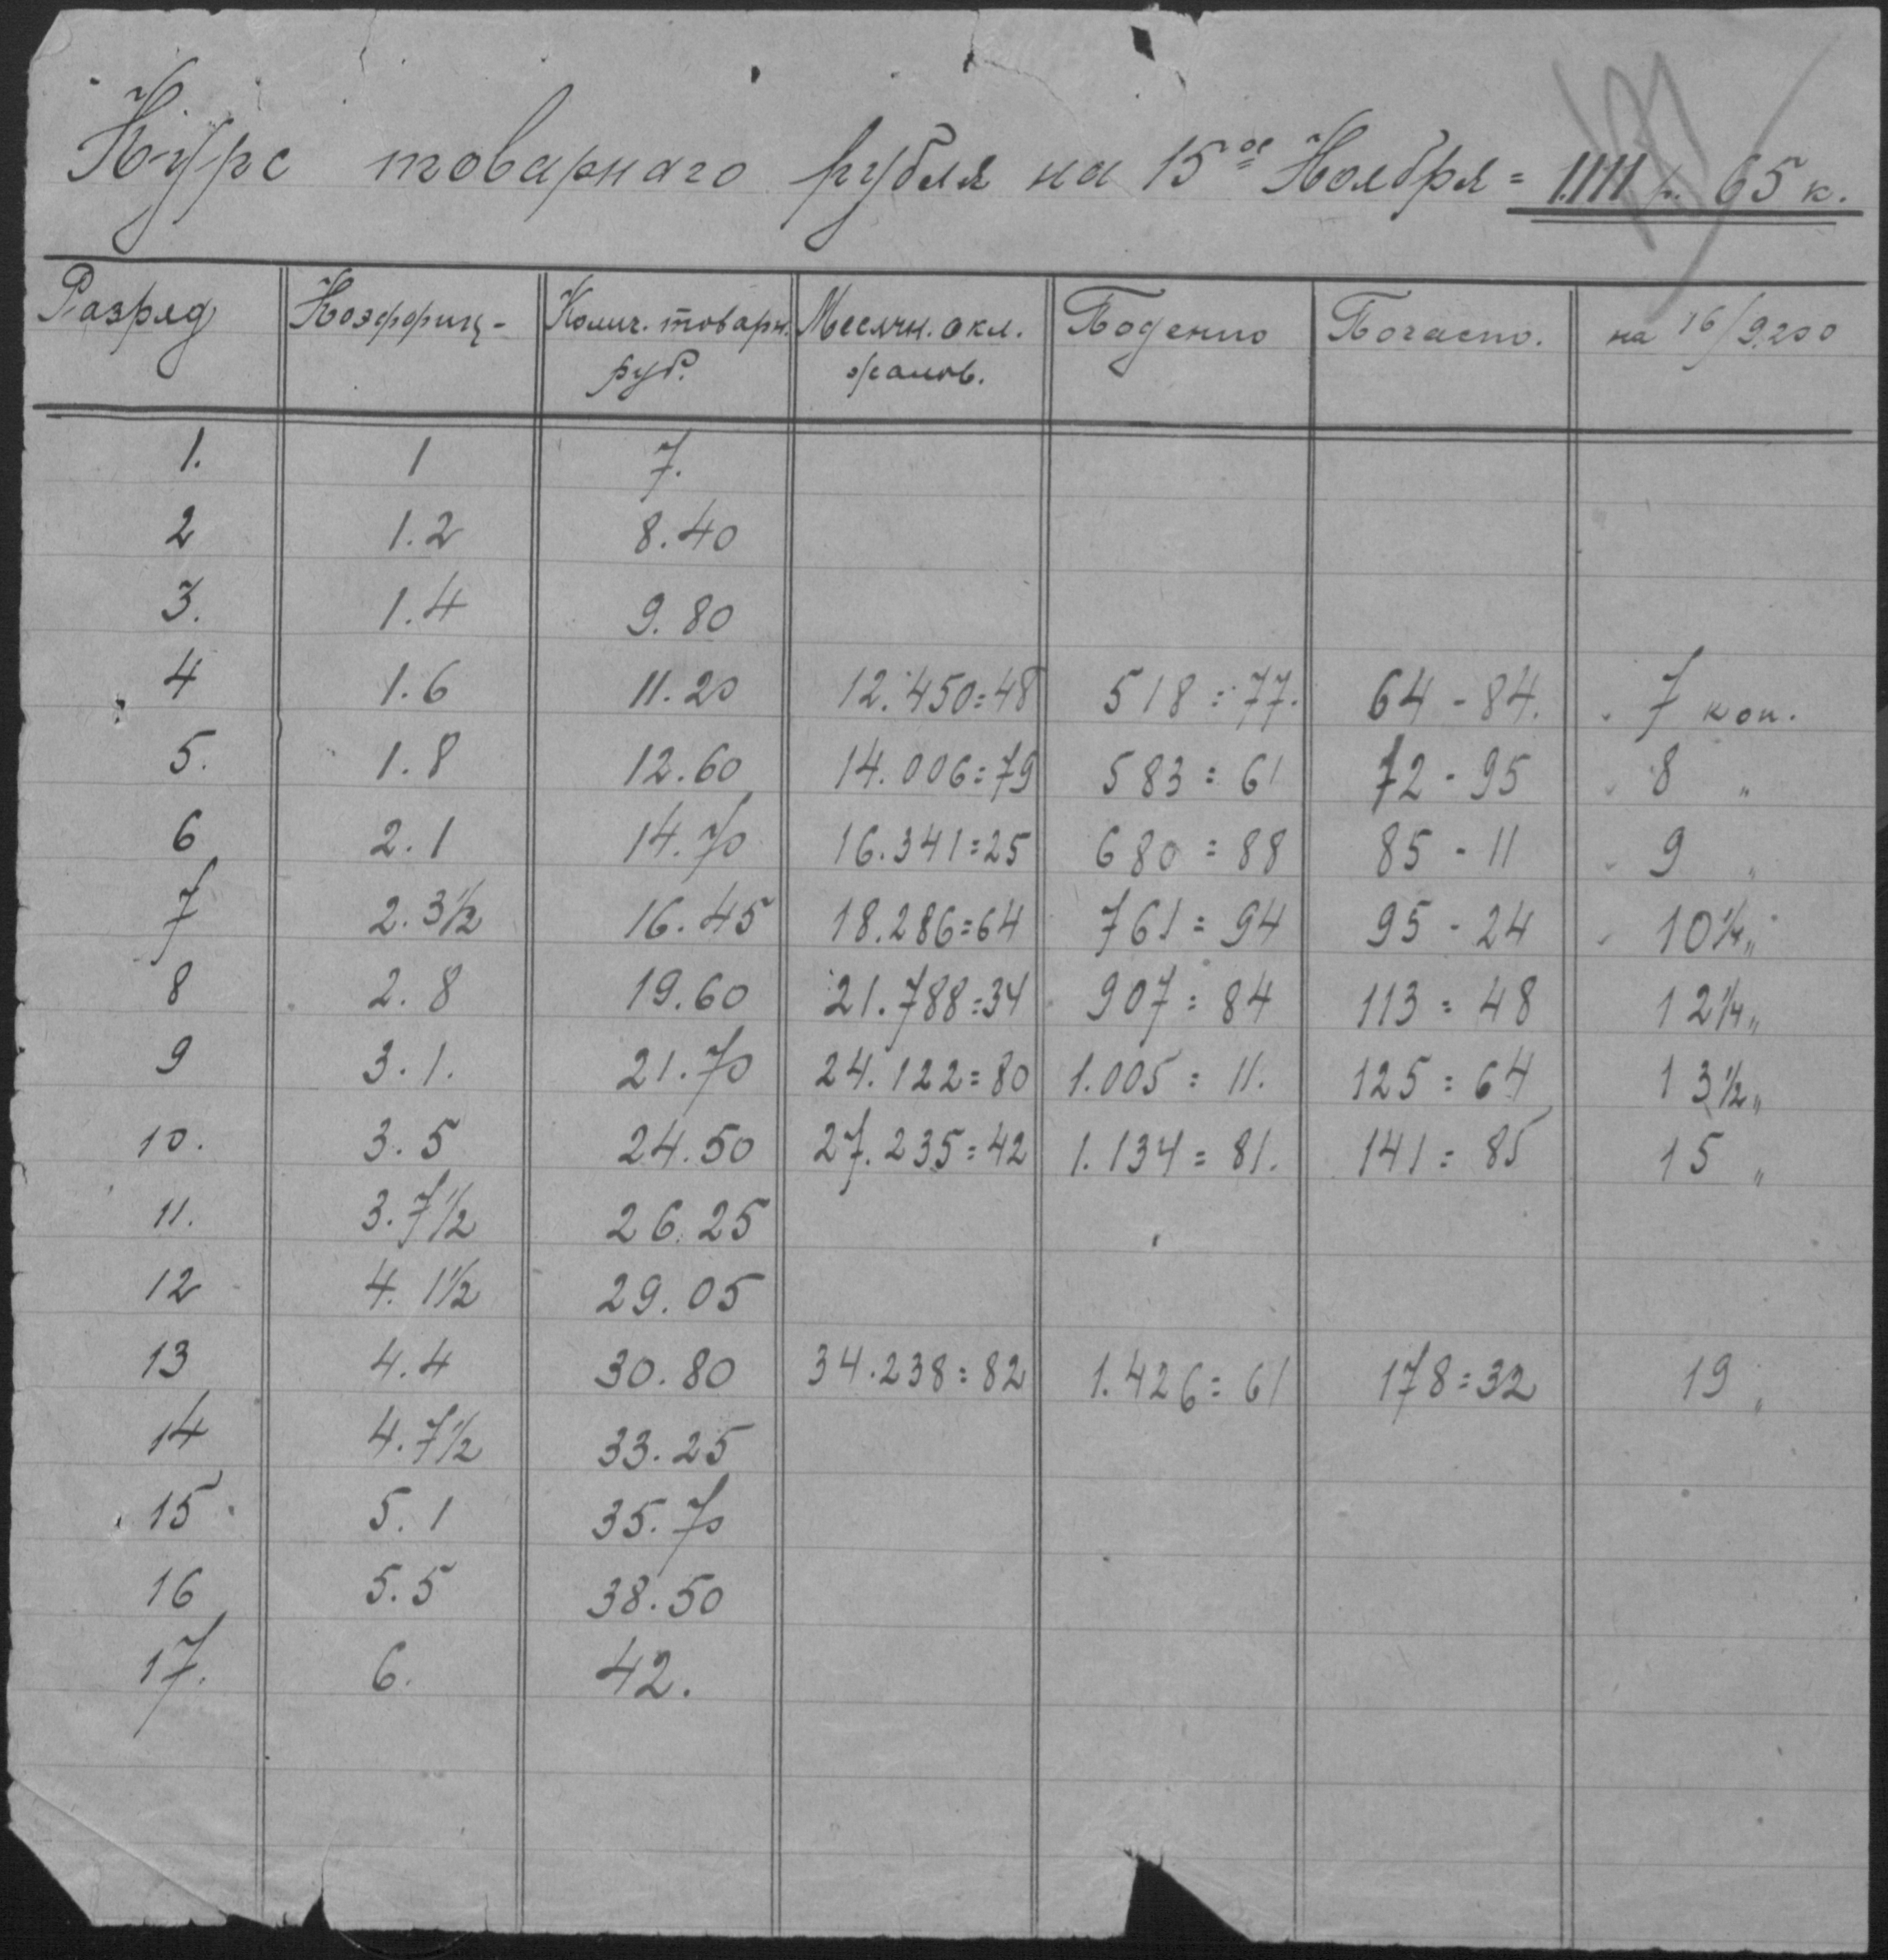 Курс товарнаго рубля на 15ое Ноября = 1.1111 р. 65 к.
Разряд Коэффиц- Колич. товарн. руб. Месячн. окл. жалов. Поденно Почасно. на 16/9.200
1. 1 7.
2 1.2 8.40
3. 1.4 9.80
4 1.6 11.20 12.450=48 518=77. 64-84. 7 коп.
5. 1.8 12.60 14.006=79 583=61 72-95 8 "
6 2.1 14.70 16.341=25 680=88 85-11 9 "
7 2.3½ 16.45 18.286=64 761=94 95-24 10¼ "
8 2.8 19.60 21.788=34 907=84 113=48 12¼ "
9 3.1. 21.70 24.122=80 1.005=11. 125=64 13½ "
10. 3.5 24.50 27.235=42 1.134=81. 141=85 15 "
11. 3.7½ 26.25
12 4.1½ 29.05
13 4.4 30.80 34.238=82 1.426=61 178=32 19 "
14 4.7½ 33.25
15 5.1 35.70
16 5.5 38.50
17. 6. 42.